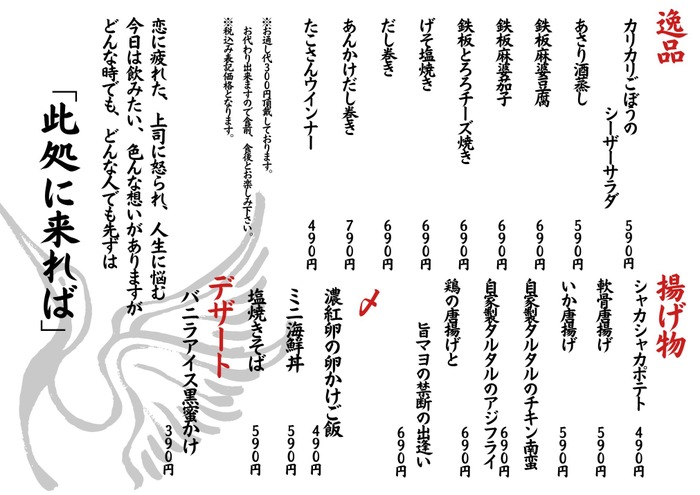 逸品
カリカリごぼうの
シーザーサラダ 590円
あさり酒蒸し 590円
鉄板麻婆豆腐 690円
鉄板麻婆茄子 690円
鉄板とろろチーズ焼き 690円
げそ塩焼き 690円
だし巻き 690円
あんかけだし巻き 790円
たこさんウインナー 490円
※お通し代300円頂戴しております。
お代わり出来ますので食前、食後とお楽しみ下さい。
※税込み表記価格となります。
揚げ物
シャカシャカポテト 490円
軟骨唐揚げ 590円
いか唐揚げ 590円
自家製タルタルのチキン南蛮 690円
自家製タルタルのアジフライ 690円
鶏の唐揚げと
旨マヨの禁断の出逢い 690円
〆
濃紅卵の卵かけご飯 490円
ミニ海鮮丼 590円
塩焼きそば 590円
デザート
バニラアイス黒蜜かけ 390円
恋に疲れた、上司に怒られ、人生に悩む
今日は飲みたい、色んな想いがありますが
どんな時でも、どんな人でも先ずは
「此処に来れば」